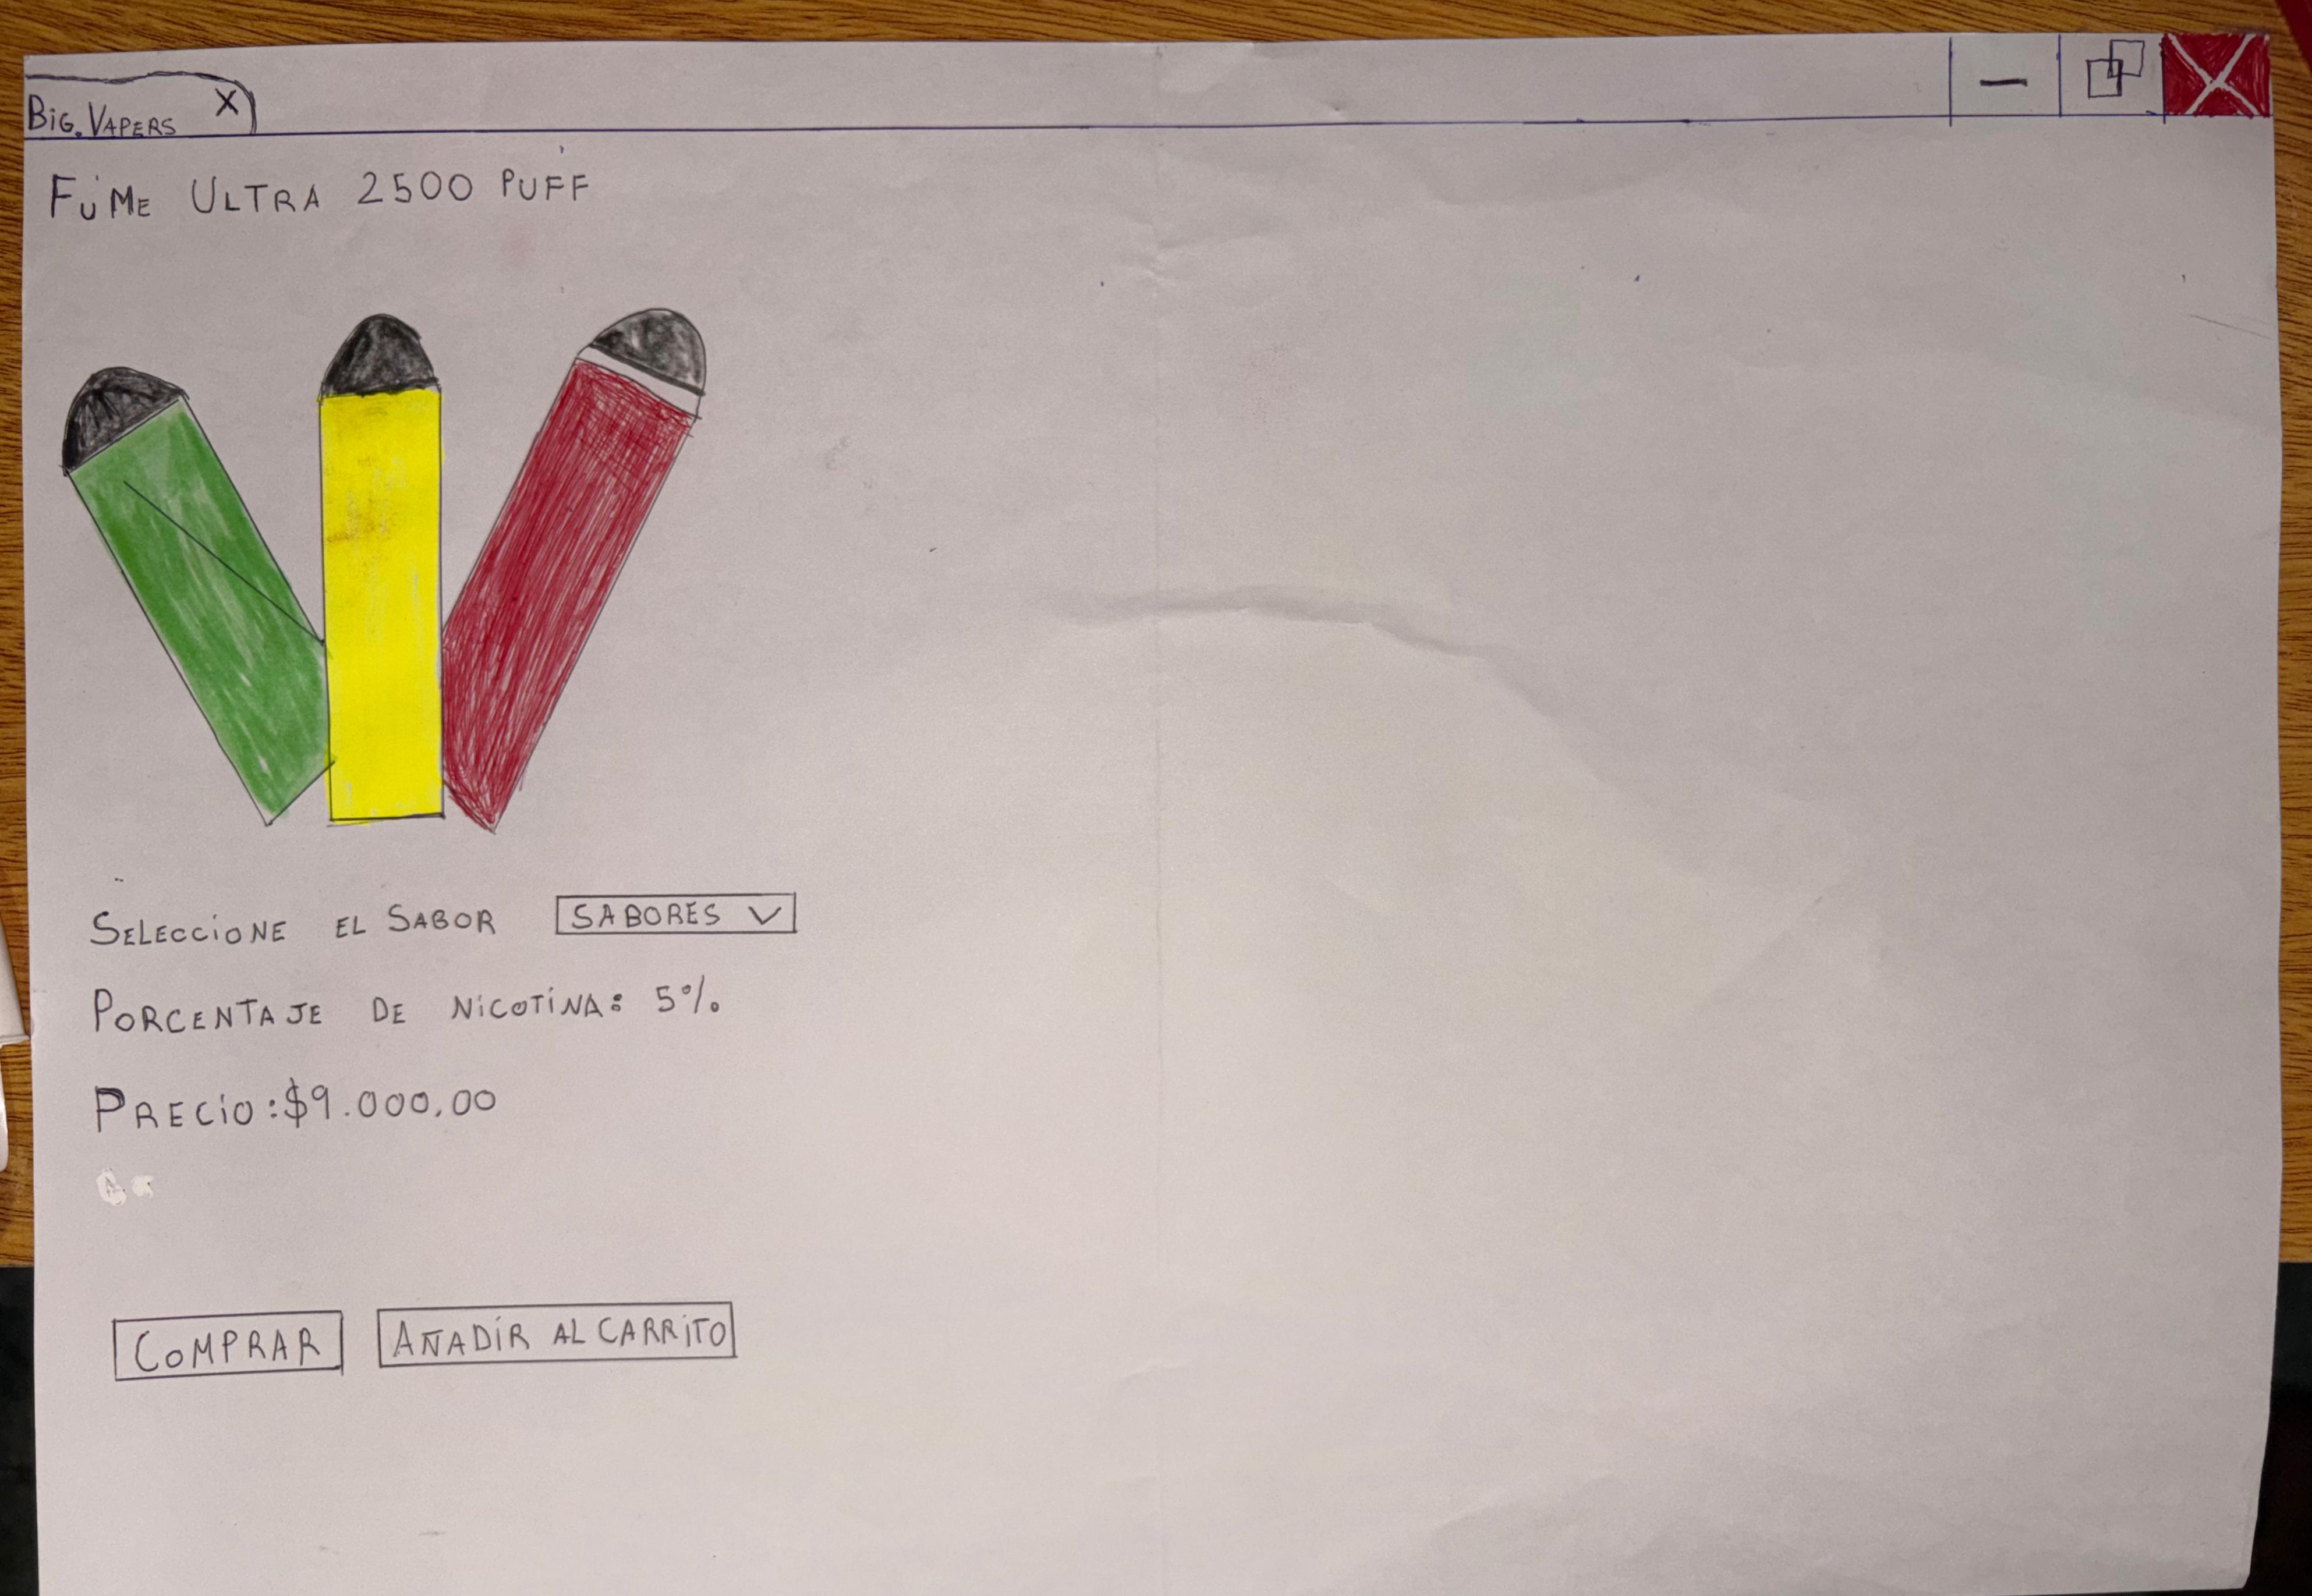 BiG. VAPERS X
FUME ULTRA 2500 PUFF
SELECCiONE EL SABOR SABORES V
PORCENTAJE DE NiCOTiNA: 5%
PRECiO: $9.000,00
COMPRAR AÑADiR AL CARRiTO